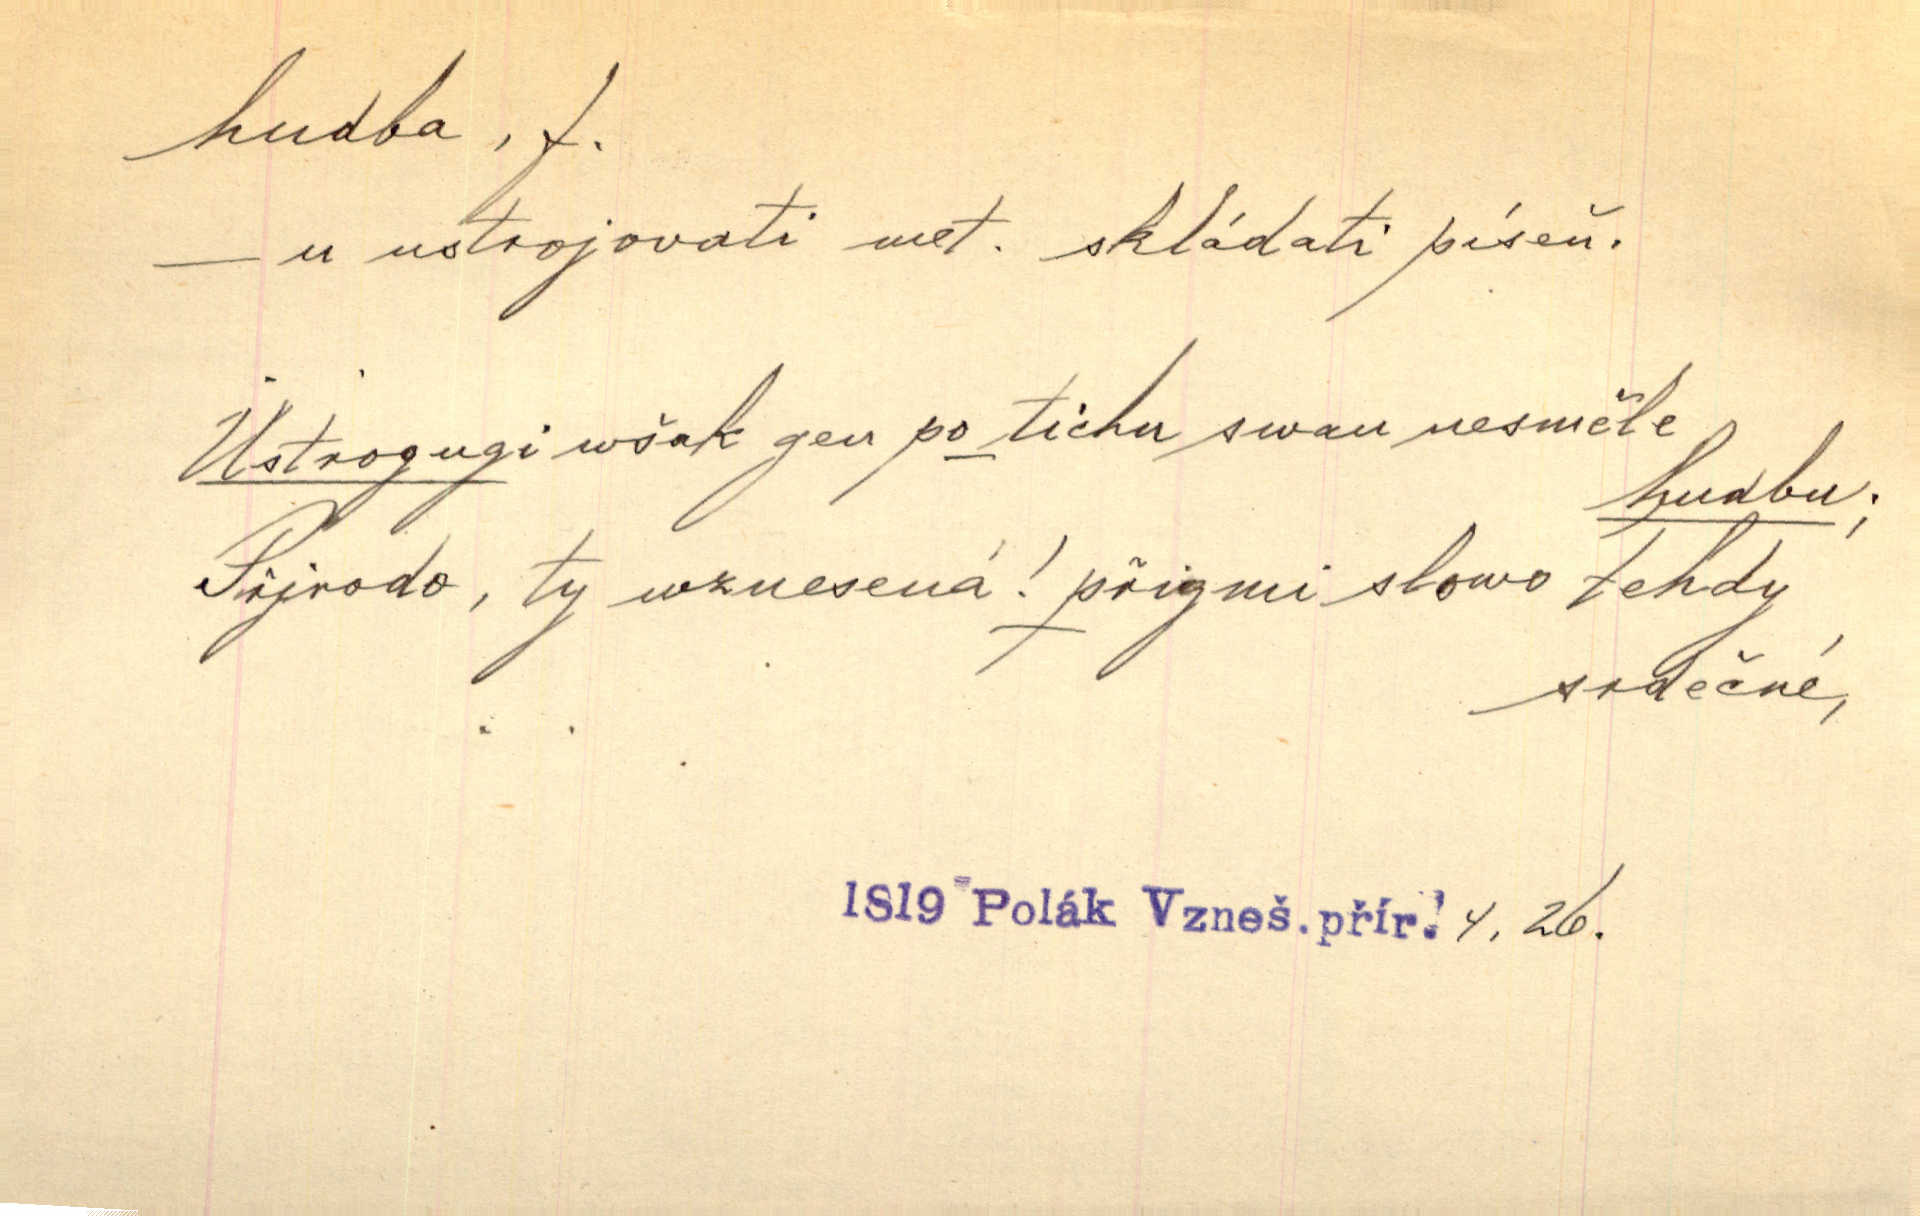 hudba, f.
— u ustrojovati met. skládati píseň.
Ustrogugi wšak gen po tichu swau nesměle
hudbu;
Přjrodo, ty wznesená! přigmi slowo tehdy
srdečné,
1819 Polák Vzneš.přír. 4, 26.